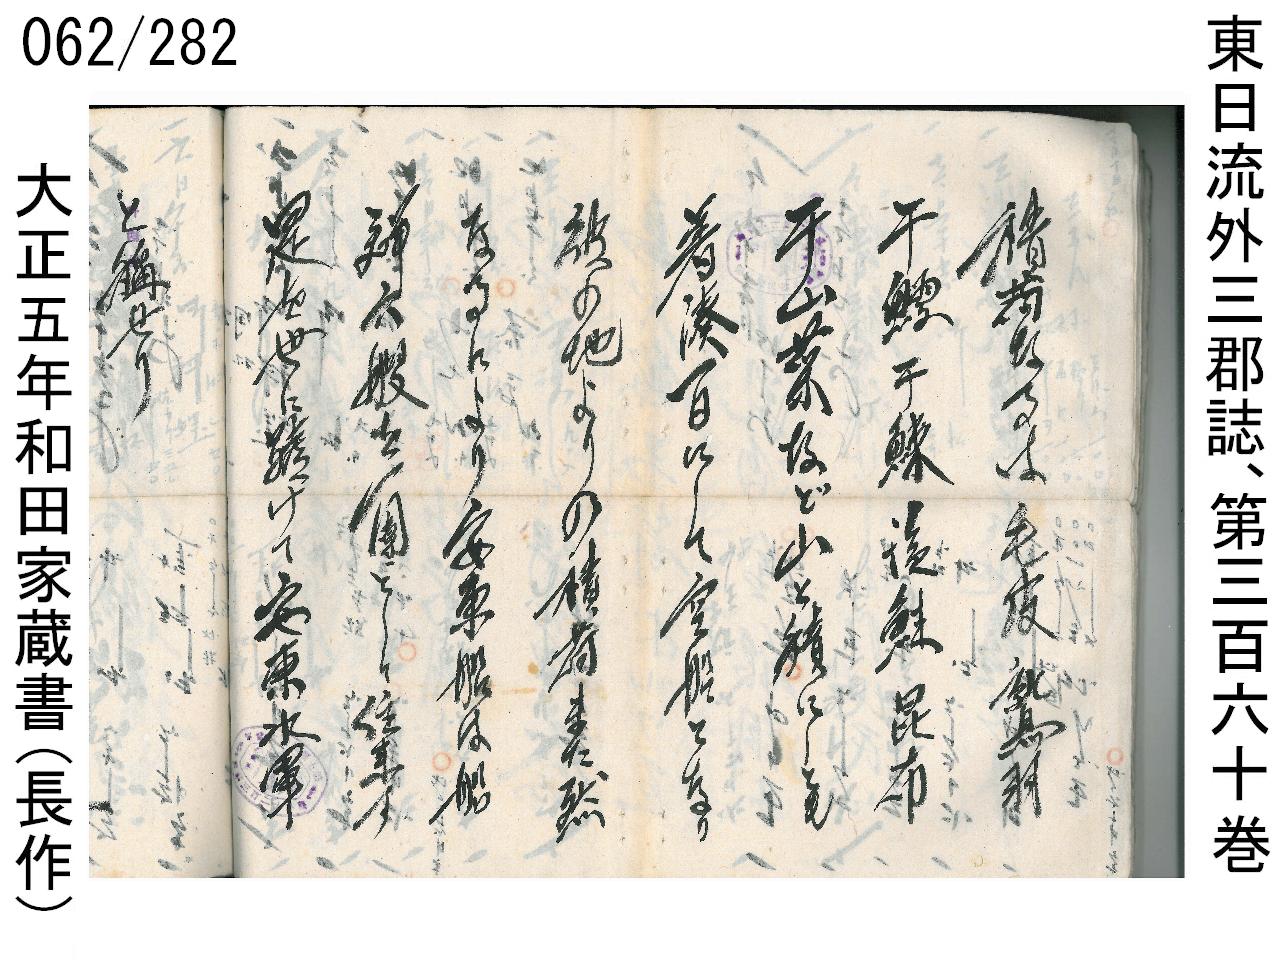 062/282
東日流外三郡誌、第三百六十巻
積荷なるは毛皮鷲羽
干鱈干鰊塩鮭昆布
干山菜など山と積にしも
着湊一日にして空船となり
彼の地よりの積荷また然
なるにより安東船は船
六艘を一團として往来
是を世に続けて安東水軍
と稱せり
大正五年和田家蔵書(長作)